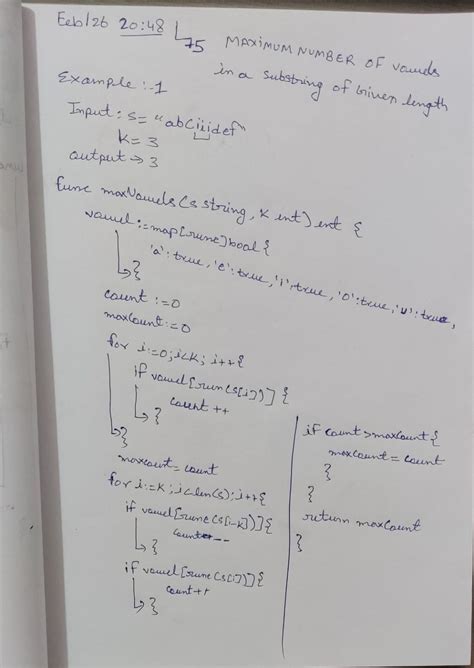 Feb/26 20:48
75 MAXIMUM NUMBER OF Vowels
in a substring of Given length
Example :-1
Input: s = "abciiidef"
k = 3
output → 3
func maxVowels(s string, k int) int {
vowel := map[rune]bool {
'a': true, 'e': true, 'i': true, 'o': true, 'u': true,
}
count := 0
maxCount := 0
for i := 0; i<k; i++ {
if vowel[rune(s[i])] {
count ++
}
}
maxcount = count
for i := k; i<len(s); i++ {
if vowel[rune(s[i-k])] {
count --
}
if vowel[rune(s[i])] {
count ++
}
if count > maxCount {
maxCount = count
}
}
return maxCount
}